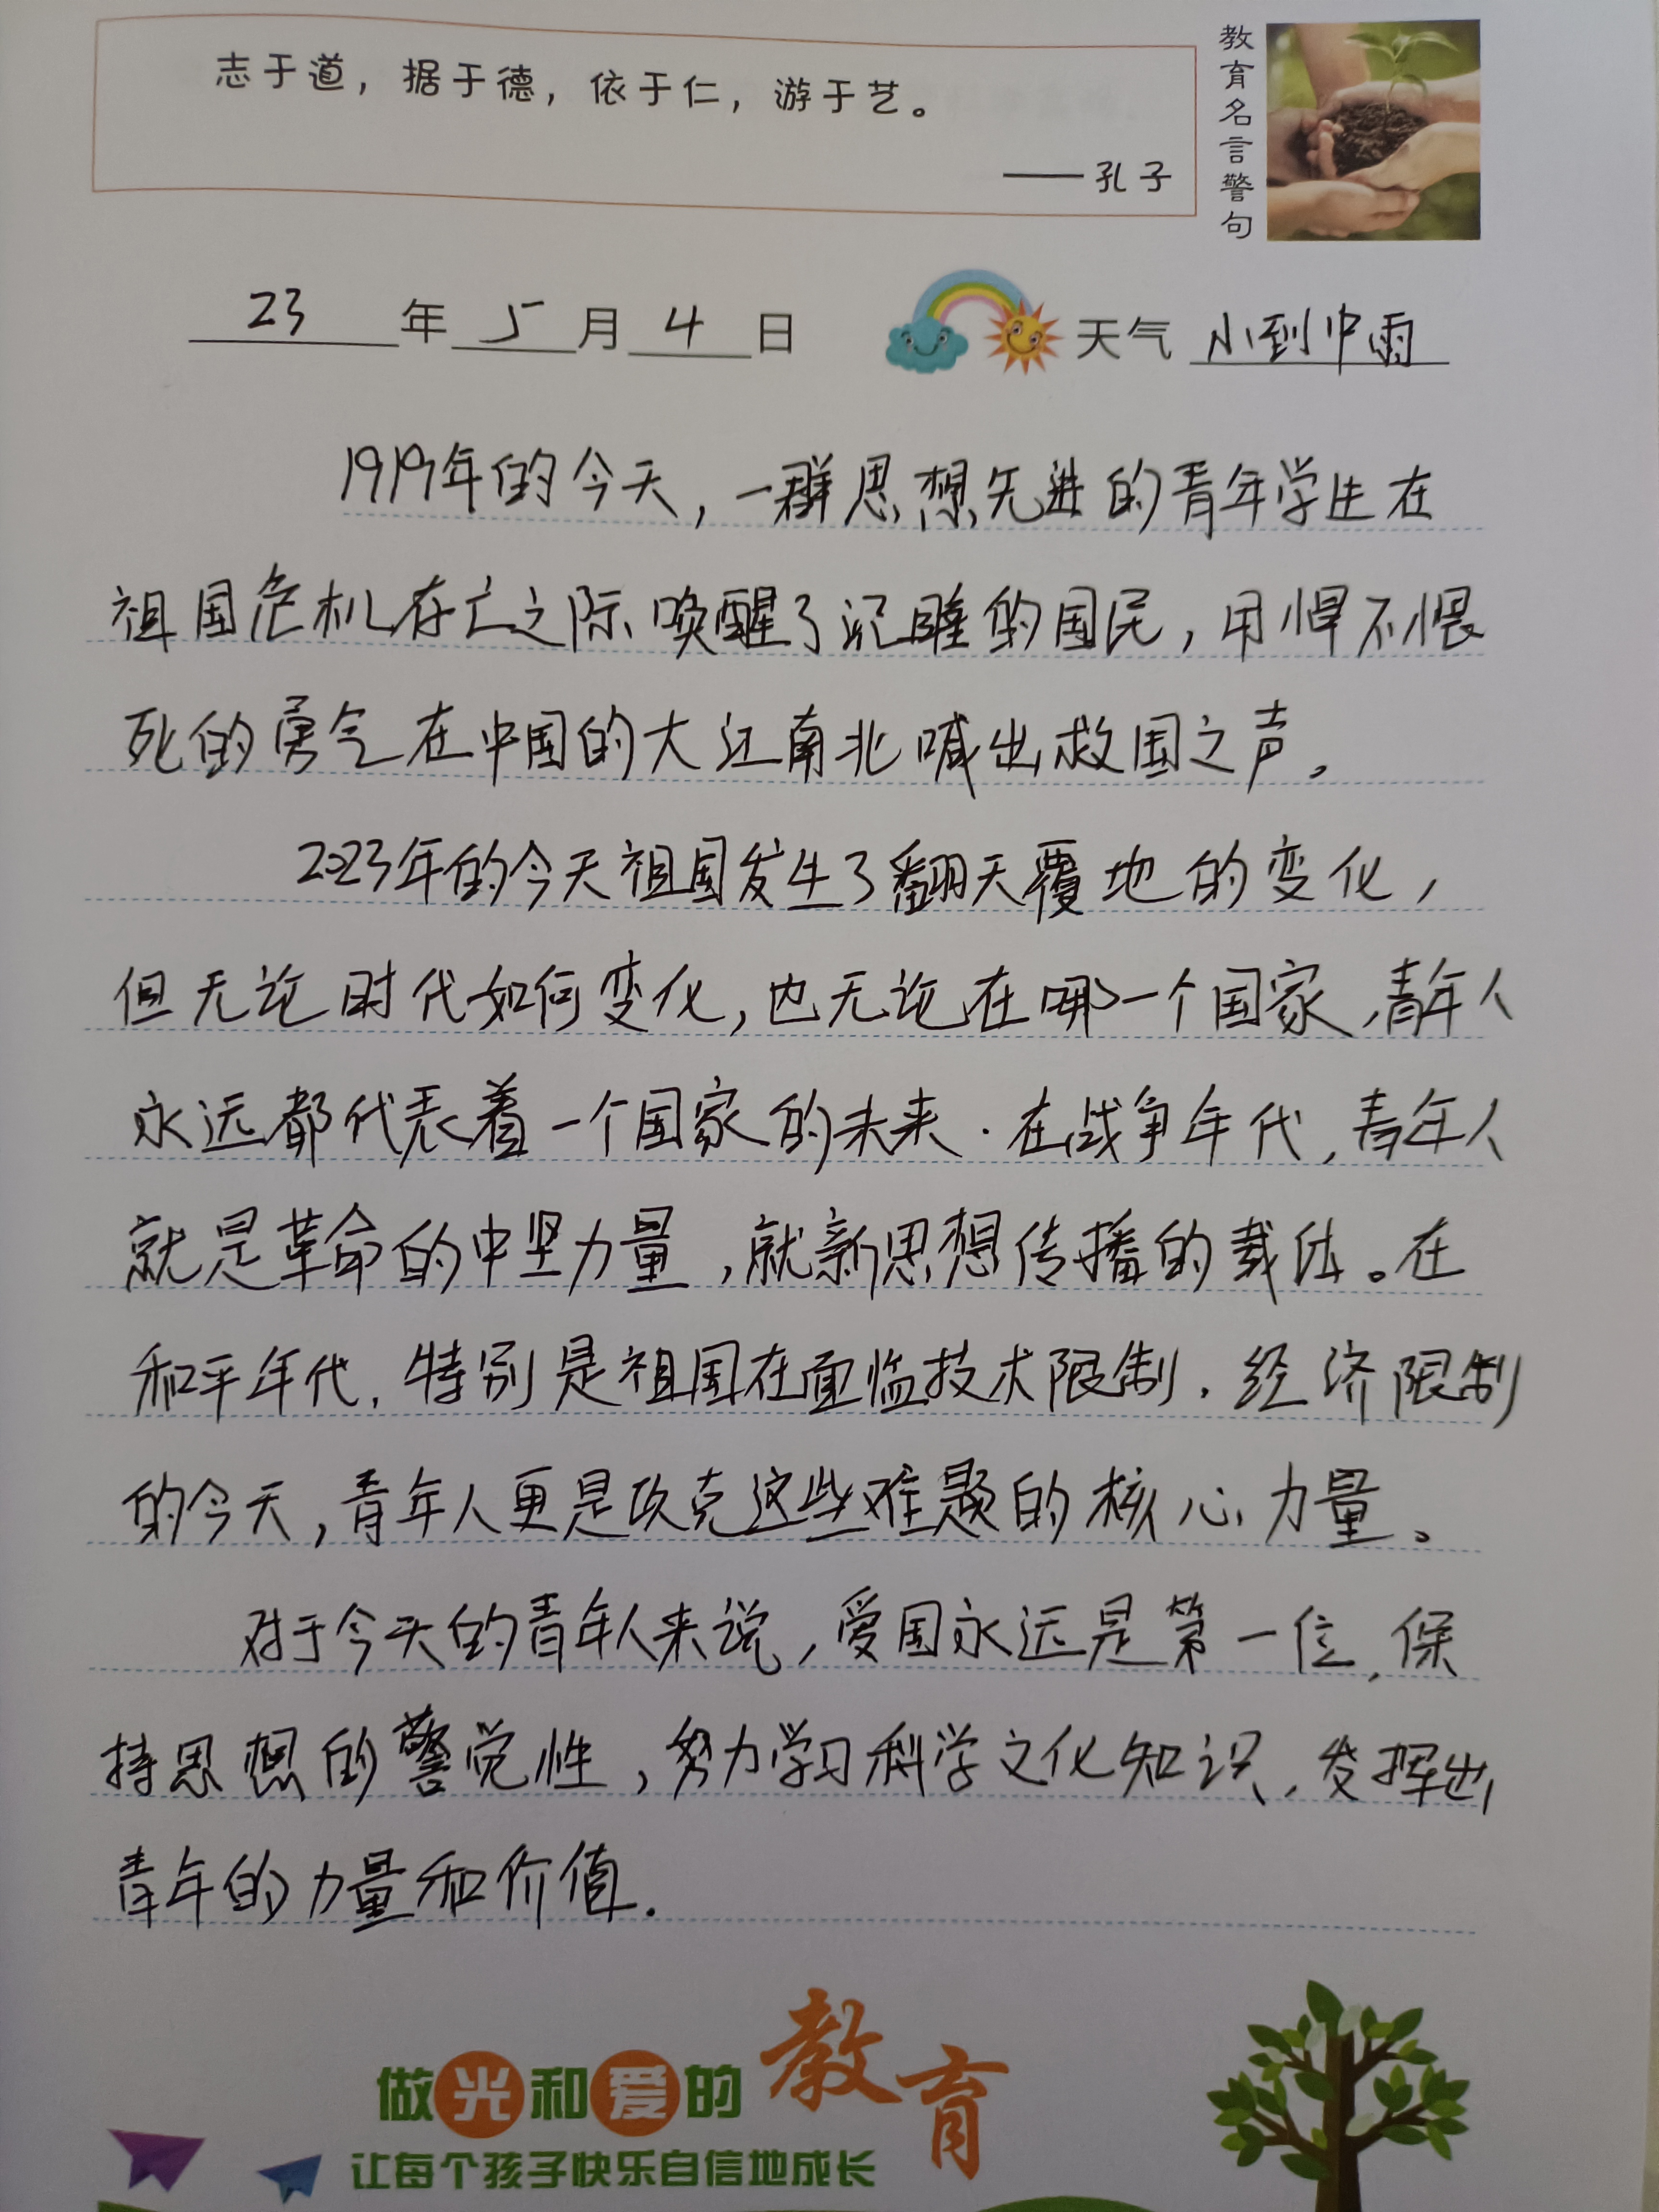 志于道，据于德，依于仁，游于艺。
——孔子
教育名言警句
23年5月4日 天气 小到中雨
1919年的今天，一群思想先进的青年学生在
祖国危机存亡之际唤醒了沉睡的国民，用悍不惧
死的勇气在中国的大江南北喊出救国之声。
2023年的今天祖国发生了翻天覆地的变化，
但无论时代如何变化，也无论在哪一个国家，青年人
永远都代表着一个国家的未来．在战争年代，青年人
就是革命的中坚力量，就新思想传播的载体。在
和平年代，特别是祖国在面临技术限制、经济限制
的今天，青年人更是攻克这些难题的核心力量。
对于今天的青年人来说，爱国永远是第一位，保
持思想的警觉性，努力学习科学文化知识，发挥出
青年的力量和价值．
做光和爱的教育
让每个孩子快乐自信地成长